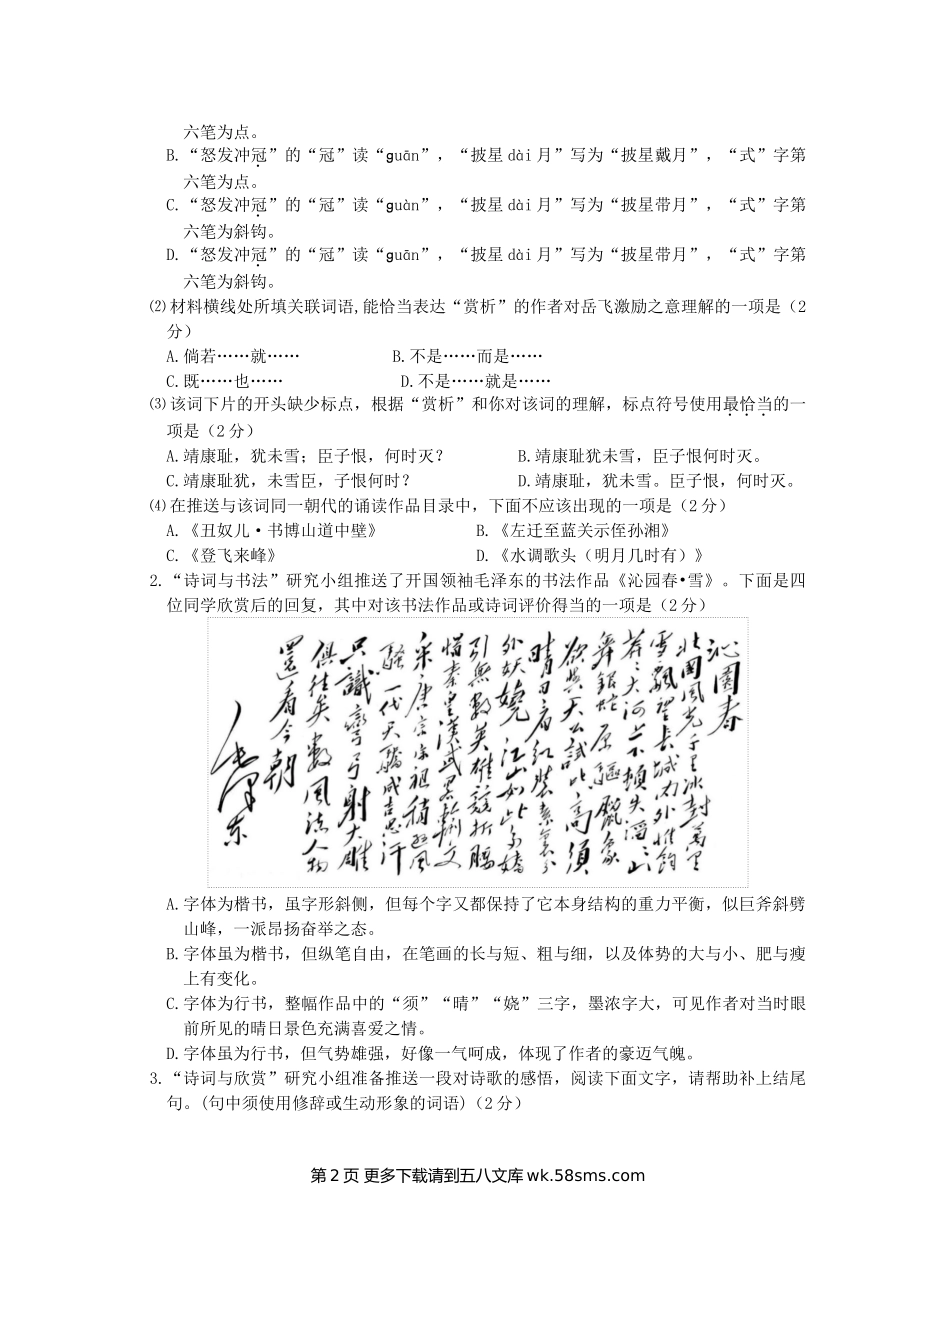 六笔为点。
B.“怒发冲冠”的“冠”读“guān”，“披星 dài 月”写为“披星戴月”，“式”字第
六笔为点。
C.“怒发冲冠”的“冠”读“guàn”，“披星 dài 月”写为“披星带月”，“式”字第
六笔为斜钩。
D.“怒发冲冠”的“冠”读“guān”，“披星 dài 月”写为“披星带月”，“式”字第
六笔为斜钩。
⑵材料横线处所填关联词语,能恰当表达“赏析”的作者对岳飞激励之意理解的一项是（2
分）
A.倘若……就…… B.不是……而是……
C.既……也…… D.不是……就是……
⑶该词下片的开头缺少标点，根据“赏析”和你对该词的理解，标点符号使用最恰当的一
项是（2 分）
A.靖康耻，犹未雪；臣子恨，何时灭？ B.靖康耻犹未雪，臣子恨何时灭。
C.靖康耻犹，未雪臣，子恨何时？ D.靖康耻，犹未雪。臣子恨，何时灭。
⑷在推送与该词同一朝代的诵读作品目录中，下面不应该出现的一项是（2 分）
A.《丑奴儿·书博山道中壁》 B.《左迁至蓝关示侄孙湘》
C.《登飞来峰》 D.《水调歌头（明月几时有）》
2.“诗词与书法”研究小组推送了开国领袖毛泽东的书法作品《沁园春•雪》。下面是四
位同学欣赏后的回复，其中对该书法作品或诗词评价得当的一项是（2 分）
沁园春
北国风光千里冰封万里
雪飘望长城内外惟馀
莽々大河上下顿失滔々山
舞银蛇原驱腊象
欲与天公试比高须
晴日看红装素裹分
外妖娆江山如此多娇
引无数英雄竞折腰
惜秦皇汉武略输文
采唐宗宋祖稍逊风
骚一代天骄成吉思汗
只识弯弓射大雕
俱往矣数风流人物
还看今朝
毛泽东
A.字体为楷书，虽字形斜侧，但每个字又都保持了它本身结构的重力平衡，似巨斧斜劈
山峰，一派昂扬奋举之态。
B.字体虽为楷书，但纵笔自由，在笔画的长与短、粗与细，以及体势的大与小、肥与瘦
上有变化。
C.字体为行书，整幅作品中的“须”“晴”“娆”三字，墨浓字大，可见作者对当时眼
前所见的晴日景色充满喜爱之情。
D.字体虽为行书，但气势雄强，好像一气呵成，体现了作者的豪迈气魄。
3.“诗词与欣赏”研究小组准备推送一段对诗歌的感悟，阅读下面文字，请帮助补上结尾
句。(句中须使用修辞或生动形象的词语)（2 分）
第 2 页 更多下载请到五八文库 wk.58sms.com